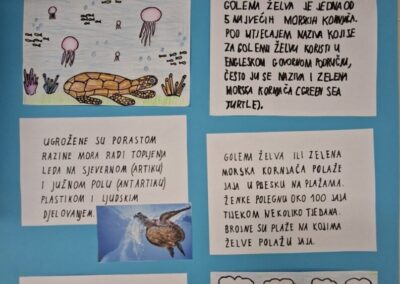 GOLEMA ŽELVA JE JEDNA OD
5 NAJVEĆIH MORSKIH KORNJAČA.
POD UTJECAJEM NAZIVA KOJI SE
ZA GOLEMU ŽELVU KORISTI U
ENGLESKOM GOVORNOM PODRUČJU,
ČESTO JU SE NAZIVA I ZELENA
MORSKA KORNJAČA (GREEN SEA
TURTLE).
UGROŽENE SU PORASTOM
RAZINE MORA RADI TOPLJENJA
LEDA NA SJEVERNOM (ARTIKU)
I JUŽNOM POLU (ANTARTIKU)
PLASTIKOM I LJUDSKIM
DJELOVANJEM.
GOLEMA ŽELVA ILI ZELENA
MORSKA KORNJAČA POLAŽE
JAJA U PIJESKU NA PLAŽAMA.
ŽENKE POLEGNU OKO 100 JAJA
TIJEKOM NEKOLIKO TJEDANA.
BROJNE SU PLAŽE NA KOJIMA
ŽELVE POLAŽU JAJA.